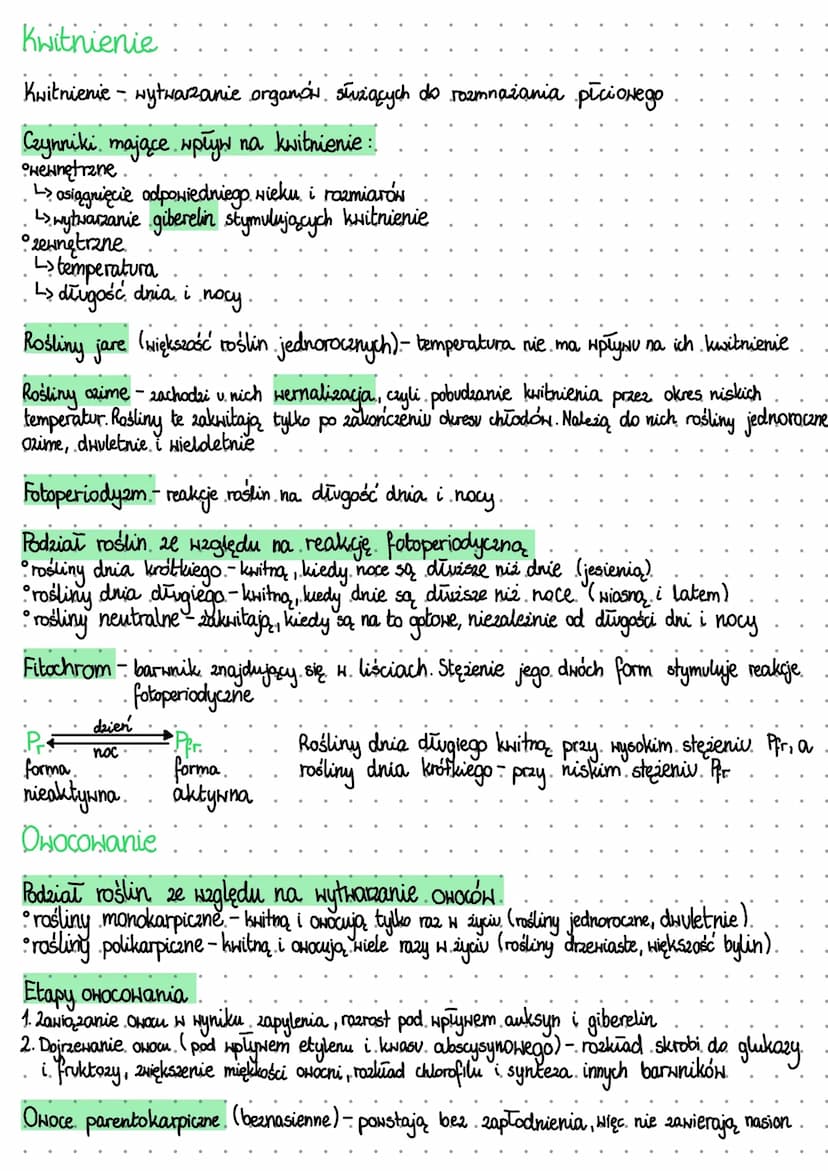 Kwitnienie
Kwitnienie - wytwarzanie organów służących do rozmnażania płciowego
Czynniki mające wpływ na kwitnienie:
°wewnętrzne
↳ osiągnięcie odpowiedniego wieku i rozmiarów
↳ wytwarzanie giberelin stymulujących kwitnienie
°zewnętrzne
↳ temperatura
↳ długość dnia i nocy
Rośliny jare (większość roślin jednorocznych) - temperatura nie ma wpływu na ich kwitnienie
Rośliny ozime - zachodzi u nich wernalizacja, czyli pobudzanie kwitnienia przez okres niskich
temperatur. Rośliny te zakwitają tylko po zakończeniu okresu chłodów. Należą do nich rośliny jednoroczne
ozime, dwuletnie i wieloletnie
Fotoperiodyzm - reakcje roślin na długość dnia i nocy
Podział roślin ze względu na reakcję fotoperiodyczną
°rośliny dnia krótkiego - kwitną, kiedy noce są dłuższe niż dnie (jesienią)
°rośliny dnia długiego - kwitną, kiedy dnie są dłuższe niż noce (wiosną i latem)
°rośliny neutralne - zakwitają, kiedy są na to gotowe, niezależnie od długości dni i nocy
Fitochrom - barwnik znajdujący się w liściach. Stężenie jego dwóch form stymuluje reakcje
fotoperiodyczne
dzień
Pr ⟷ Pfr
noc
forma nieaktywna
forma aktywna
Rośliny dnia długiego kwitną przy wysokim stężeniu Pfr, a
rośliny dnia krótkiego - przy niskim stężeniu Pfr
Owocowanie
Podział roślin ze względu na wytwarzanie owoców
°rośliny monokarpiczne - kwitną i owocują tylko raz w życiu (rośliny jednoroczne, dwuletnie)
°rośliny polikarpiczne - kwitną i owocują wiele razy w życiu (rośliny drzewiaste, większość bylin)
Etapy owocowania
1. Zawiązanie owocu w wyniku zapylenia, rozrost pod wpływem auksyn i giberelin
2. Dojrzewanie owocu (pod wpływem etylenu i kwasu abscysynowego) - rozkład skrobi do glukozy
i fruktozy, zwiększenie miękkości owocni, rozkład chlorofilu i synteza innych barwników
Owoce parentokarpiczne (beznasienne) - powstają bez zapłodnienia, więc nie zawierają nasion